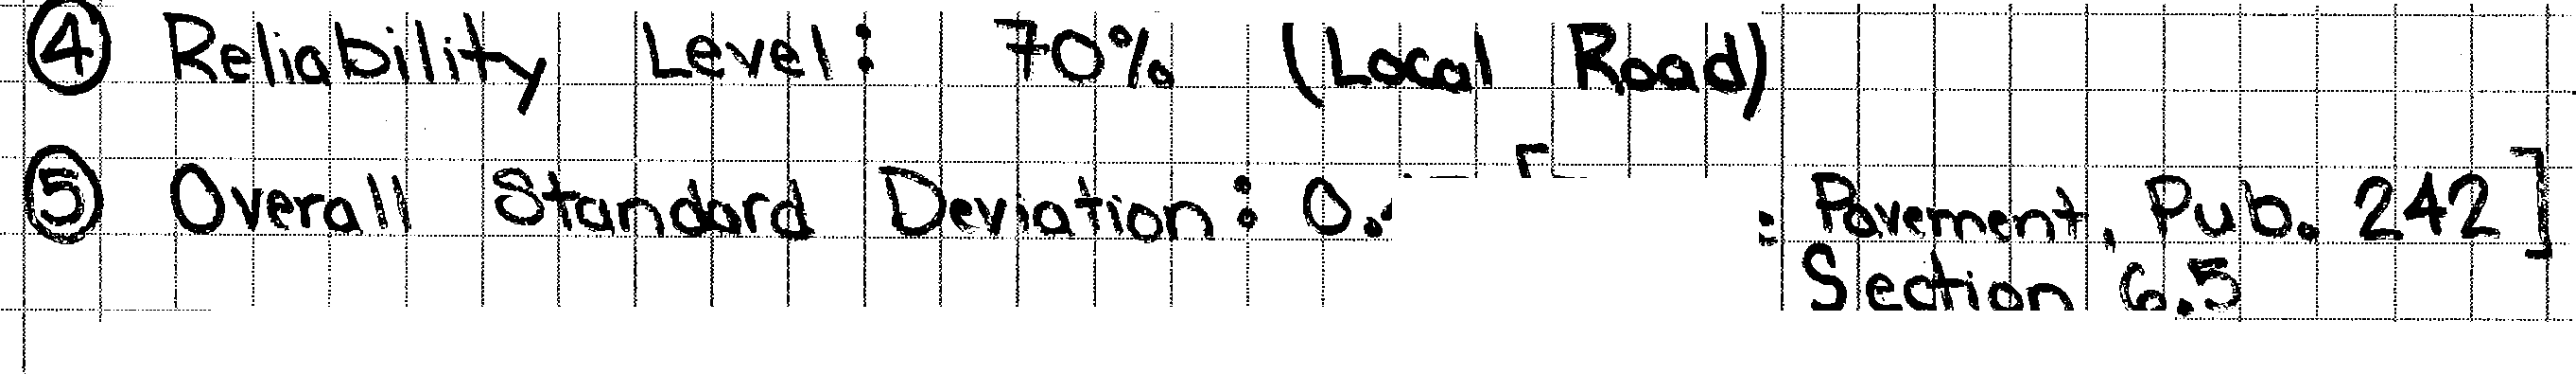 ④ Reliability Level: 70% (Local Road)
⑤ Overall Standard Deviation: 0. Pavement, Pub. 242]
Section 6.5